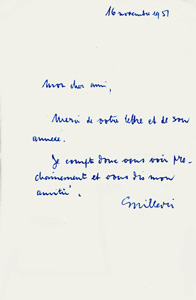 16 novembre 1951
Mon cher ami,
Merci de votre lettre et de son
annexe.
Je compte donc vous voir pro-
chainement et vous dis mon
amitié.
Guillevic